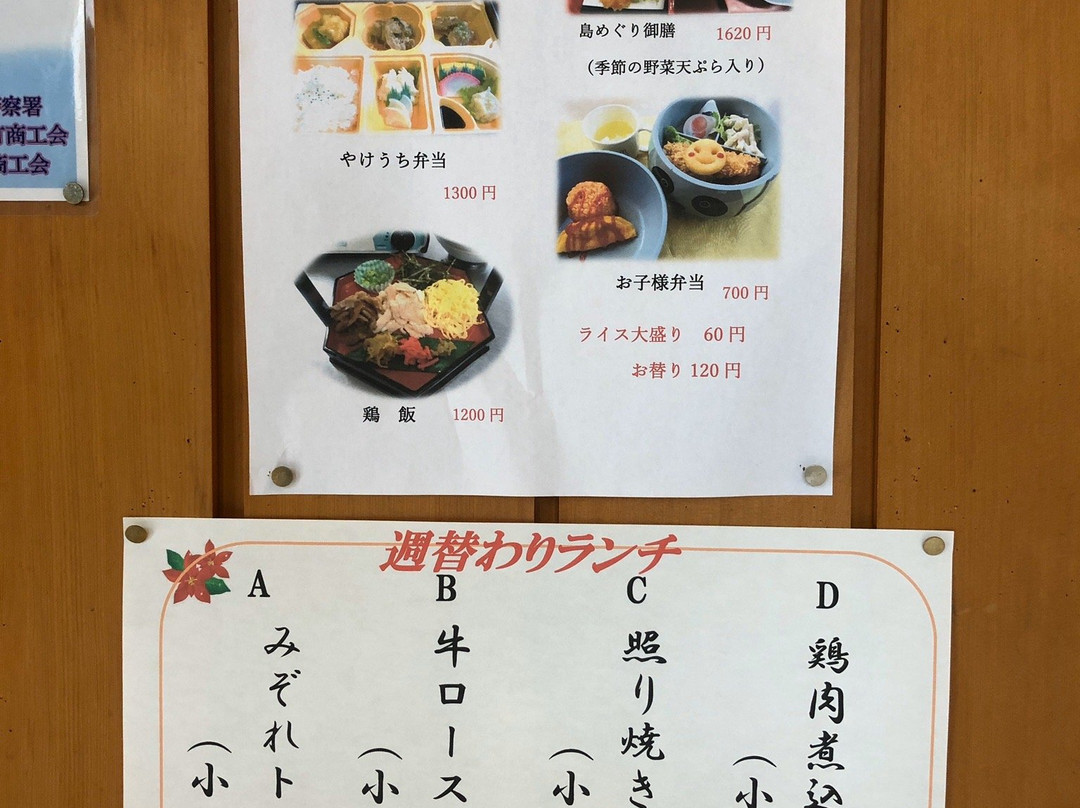 察署
商工会
商工会
やけうち弁当
1300円
鶏 飯 1200円
島めぐり御膳 1620円
（季節の野菜天ぷら入り）
お子様弁当 700円
ライス大盛り 60円
お替り 120円
週替わりランチ
A
みぞれト
（小
B
牛ロース
（小
C
照り焼き
（小
D
鶏肉煮込
（小